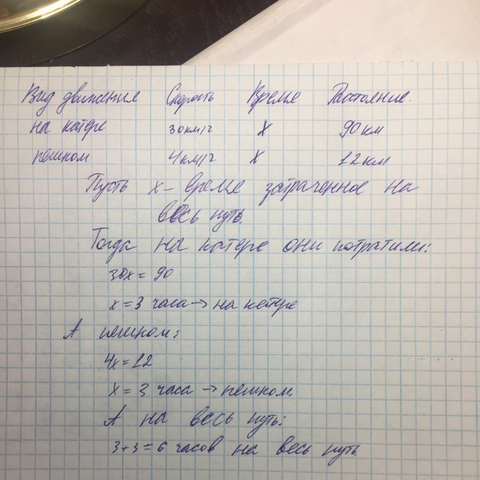 Вид движения Скорость Время Расстояние.
на катере 30км/г х 90км
пешком 4км/г х 12км
Пусть х - время затраченное на
весь путь
Тогда на катере они потратили:
30х = 90
х = 3 часа → на катере
А пешком:
4х = 12
х = 3 часа → пешком
А на весь путь:
3+3=6 часов на весь путь